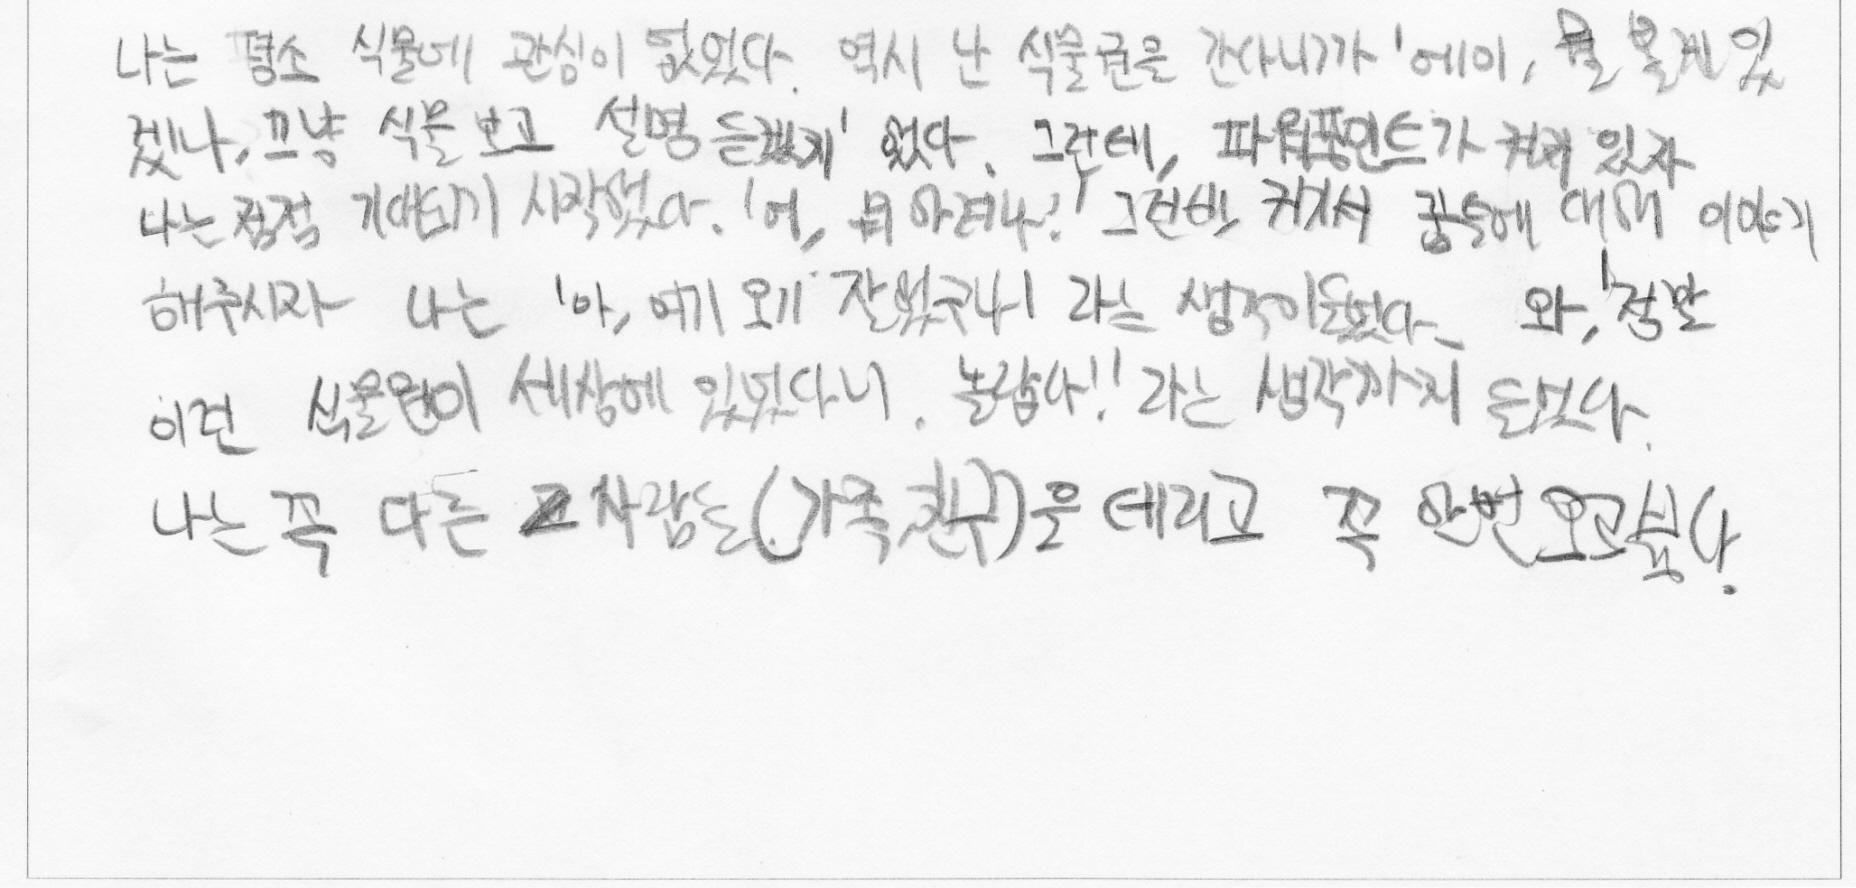 나는 평소 식물에 관심이 없었다. 역시 난 식물원을 간다니까 '에이, 뭘 볼게 있
겠나, 그냥 식물 보고 설명 듣겠지' 었다. 그런데, 파워퐁인트가 켜져 있자
나는 점점 기대되기 시작했다. '어, 뭐 하려나?' 그런데, 커져서 꿈들에 대해 이야기
해주시자 나는 '아, 여기 오기 잘했구나' 라는 생각이 들었다. 와, '정말
이런 식물원이 세상에 있었다니. 놀랍다!' 라는 생각까지 들었다.
나는 꼭 다른 사람들(가족, 친구)을 데리고 꼭 한번 오고싶다.